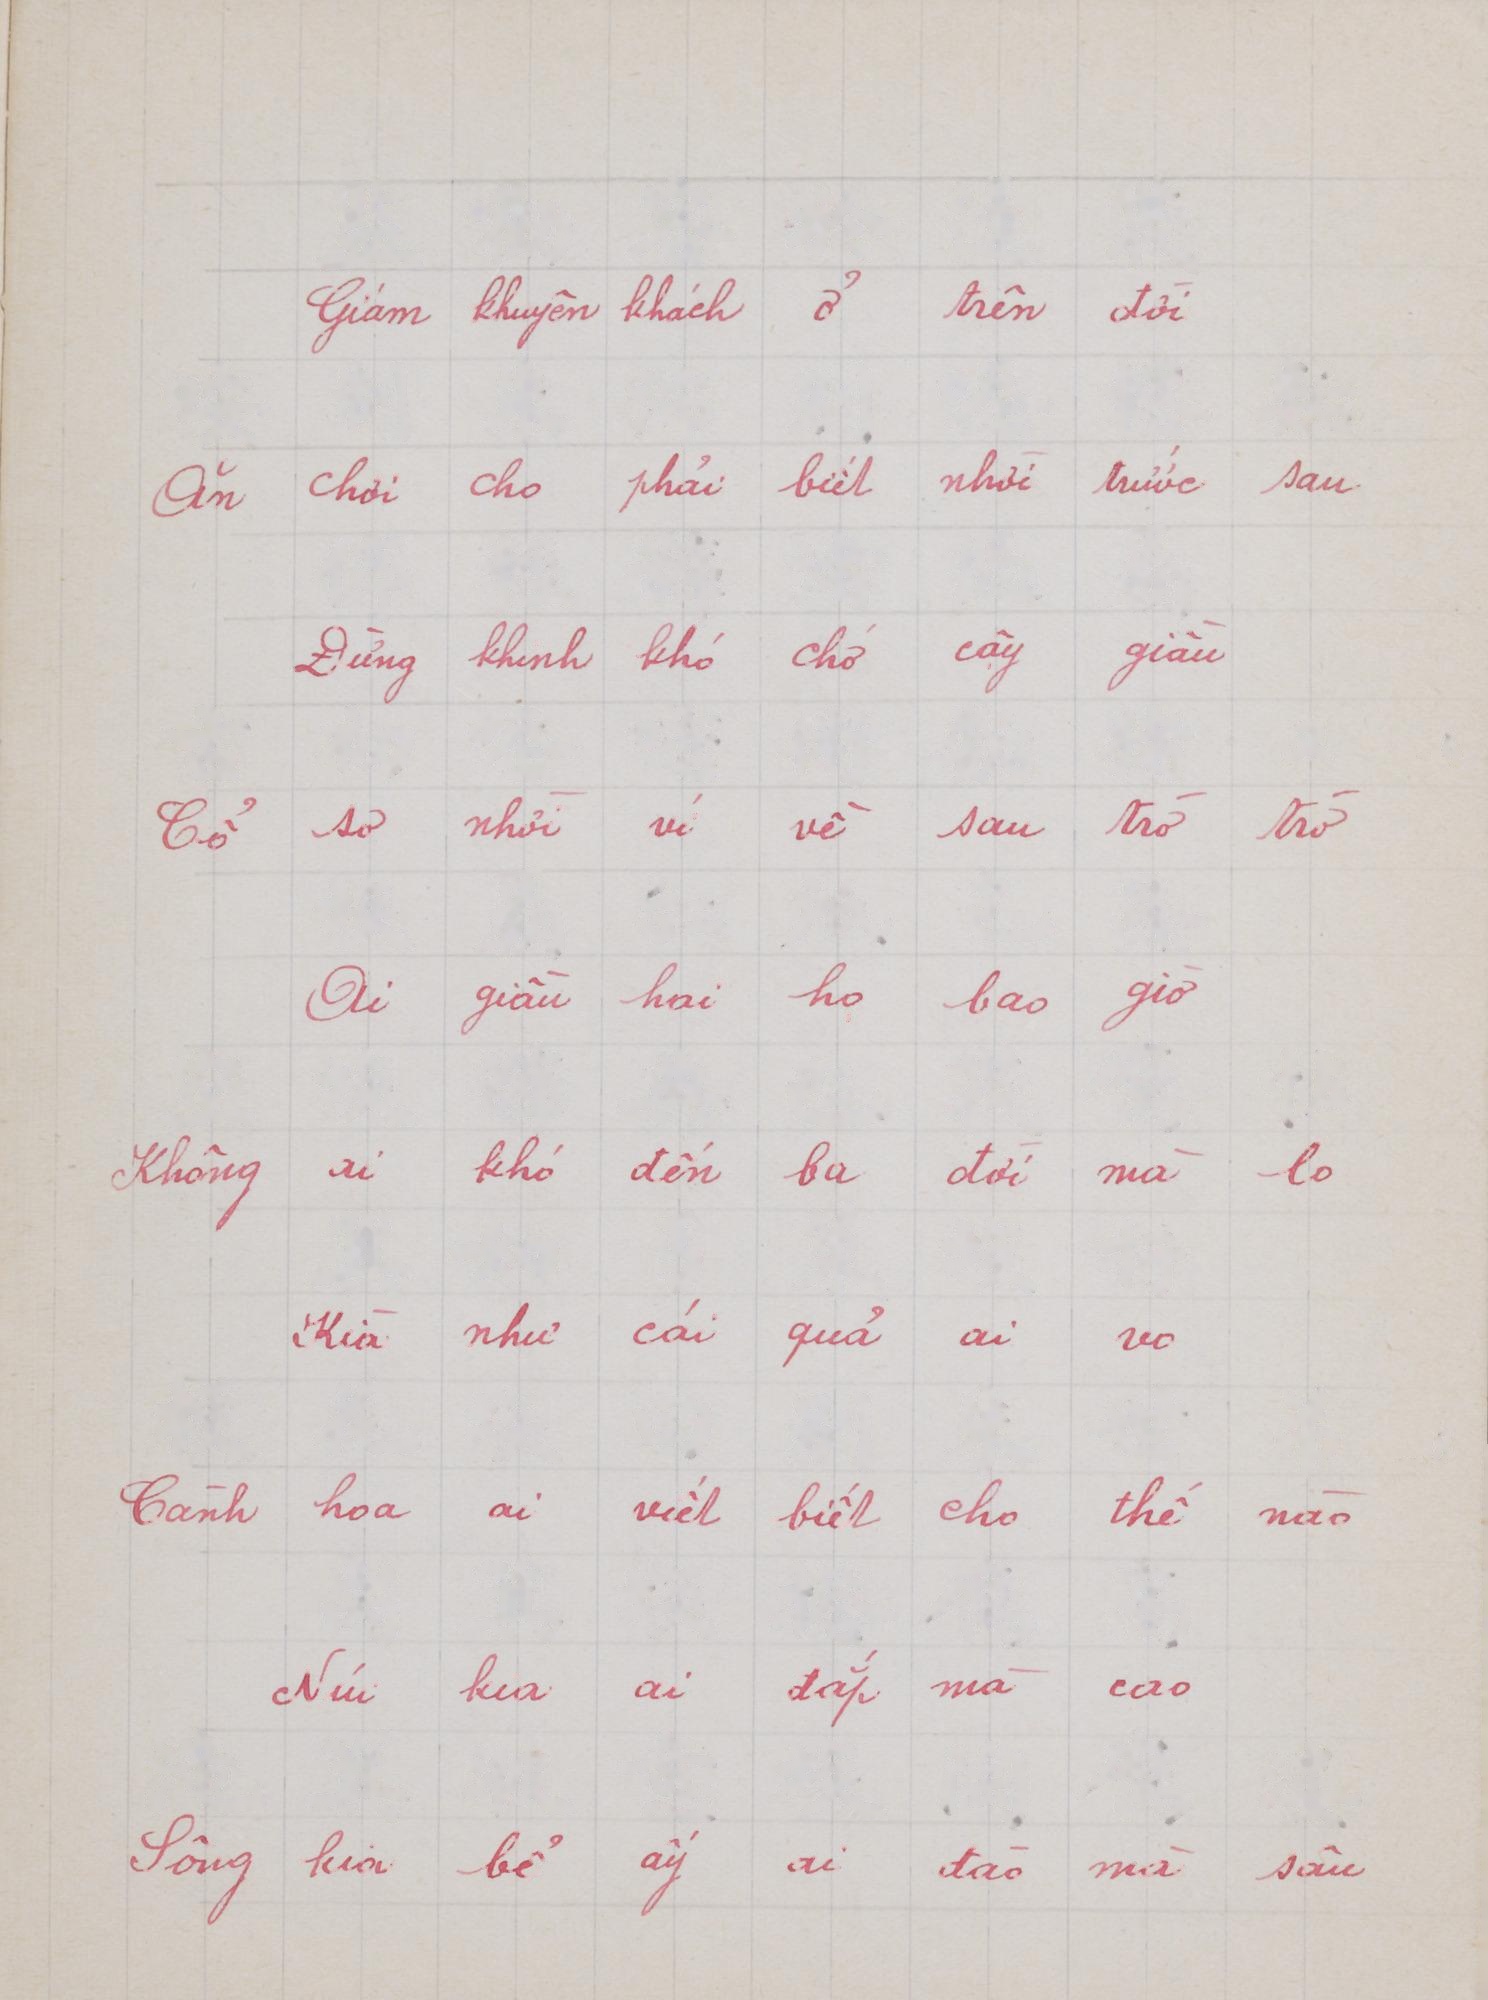 Giám khuyên khách ở trên đời
Ăn chơi cho phải biết nhời trước sau
Đừng khinh khó chớ cậy giầu
Cổ sơ nhời ví về sau trờ trờ
Ai giầu hai họ bao giờ
Không ai khó đến ba đời mà lo
Kìa như cái quả ai vo
Cành hoa ai viết biết cho thế nào
Núi kia ai đắp mà cao
Sông kia bể ấy ai đào mà sâu